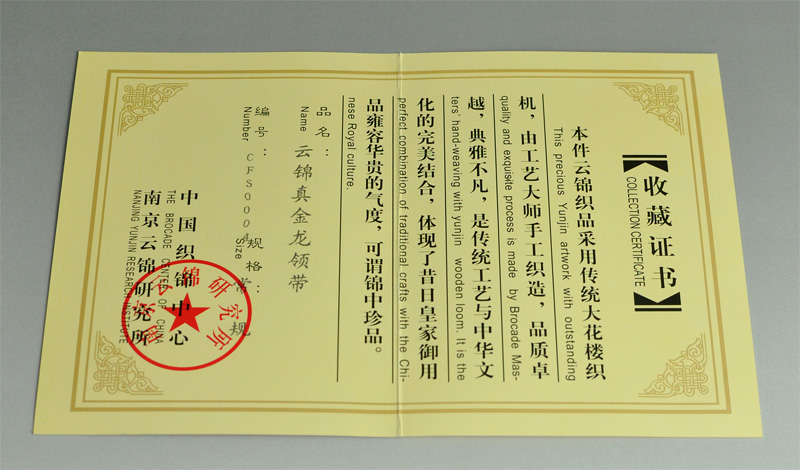 【收藏证书】
COLLECTION CERTIFICATE
本件云锦织品采用传统大花楼织
This precious Yunjin artwork with outstanding
机，由工艺大师手工织造，品质卓
quality and exquisite process is made by Brocade Mas-
越，典雅不凡，是传统工艺与中华文
ters' hand-weaving with yunjin wooden loom. It is the
化的完美结合，体现了昔日皇家御用
perfect combination of traditional crafts with the Chi-
品雍容华贵的气度，可谓锦中珍品。
nese Royal culture.
品名：云锦真金龙领带
Name
编号：
Number CFS0004
规格：常规
Size
中国织锦中心
THE BROCADE CENTER OF CHINA
南京云锦研究所
NANJING YUNJIN RESEARCH INSTITUTE
南京云锦研究所